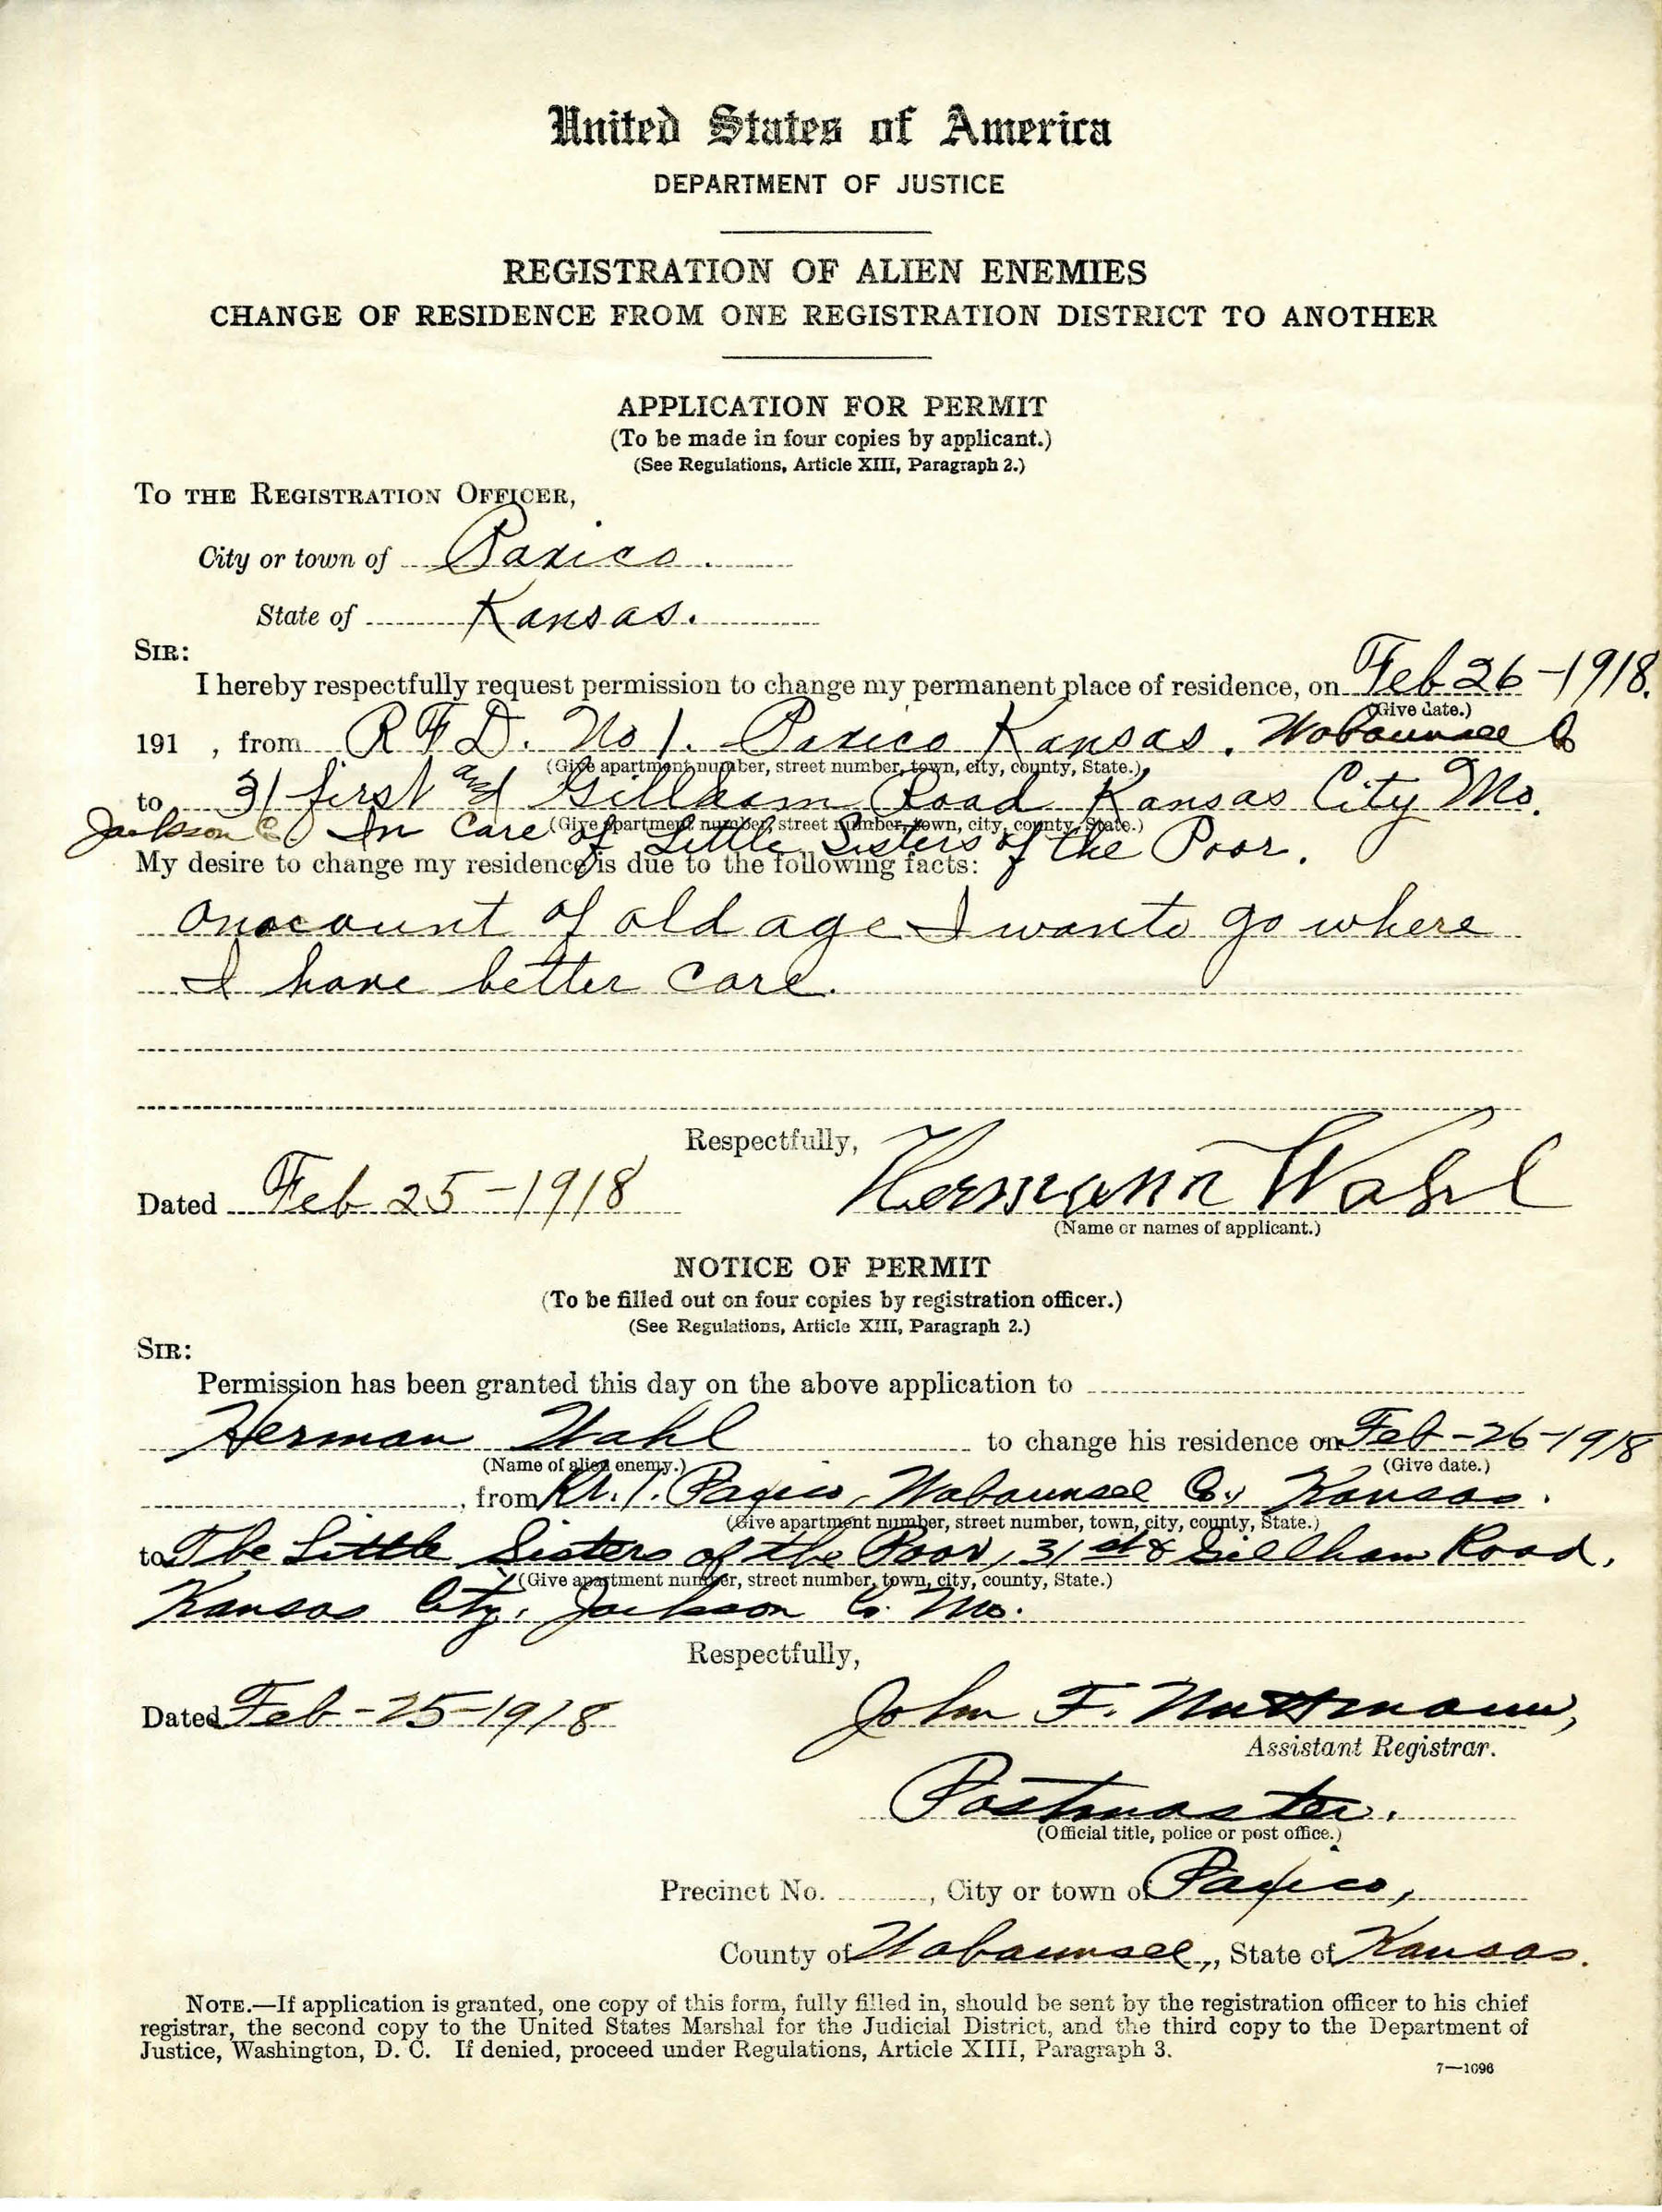 United States of America
DEPARTMENT OF JUSTICE
REGISTRATION OF ALIEN ENEMIES
CHANGE OF RESIDENCE FROM ONE REGISTRATION DISTRICT TO ANOTHER
APPLICATION FOR PERMIT
(To be made in four copies by applicant.)
(See Regulations, Article XIII, Paragraph 2.)
TO THE REGISTRATION OFFICER,
City or town of Paxico.
State of Kansas.
SIR:
I hereby respectfully request permission to change my permanent place of residence, on Feb 26-1918.
(Give date.)
191 , from R F D. No 1. Paxico Kansas. Wabaunsee Co
(Give apartment number, street number, town, city, county, State.)
to 31 first and Gillham Road Kansas City Mo.
(Give apartment number, street number, town, city, county, State.)
Jackson Co In Care of Little Sisters of the Poor.
My desire to change my residence is due to the following facts:
onaccount of old age I wanto go where
I have better care.
Respectfully,
Dated Feb 25-1918 Hermann Wahl
(Name or names of applicant.)
NOTICE OF PERMIT
(To be filled out on four copies by registration officer.)
(See Regulations, Article XIII, Paragraph 2.)
SIR:
Permission has been granted this day on the above application to
Herman Wahl to change his residence on Feb-26-1918
(Name of alien enemy.) (Give date.)
, from Rr. 1. Paxico, Wabaunsee Co., Kansas.
(Give apartment number, street number, town, city, county, State.)
to The Little Sisters of the Poor, 31st & Gillham Road,
(Give apartment number, street number, town, city, county, State.)
Kansas City, Jackson Co. Mo.
Respectfully,
Dated Feb-25-1918 John F. Nuttmann,
Assistant Registrar.
Postmaster.
(Official title, police or post office.)
Precinct No. , City or town of Paxico,
County of Wabaunsee, State of Kansas.
NOTE.—If application is granted, one copy of this form, fully filled in, should be sent by the registration officer to his chief
registrar, the second copy to the United States Marshal for the Judicial District, and the third copy to the Department of
Justice, Washington, D. C. If denied, proceed under Regulations, Article XIII, Paragraph 3.
7—1096